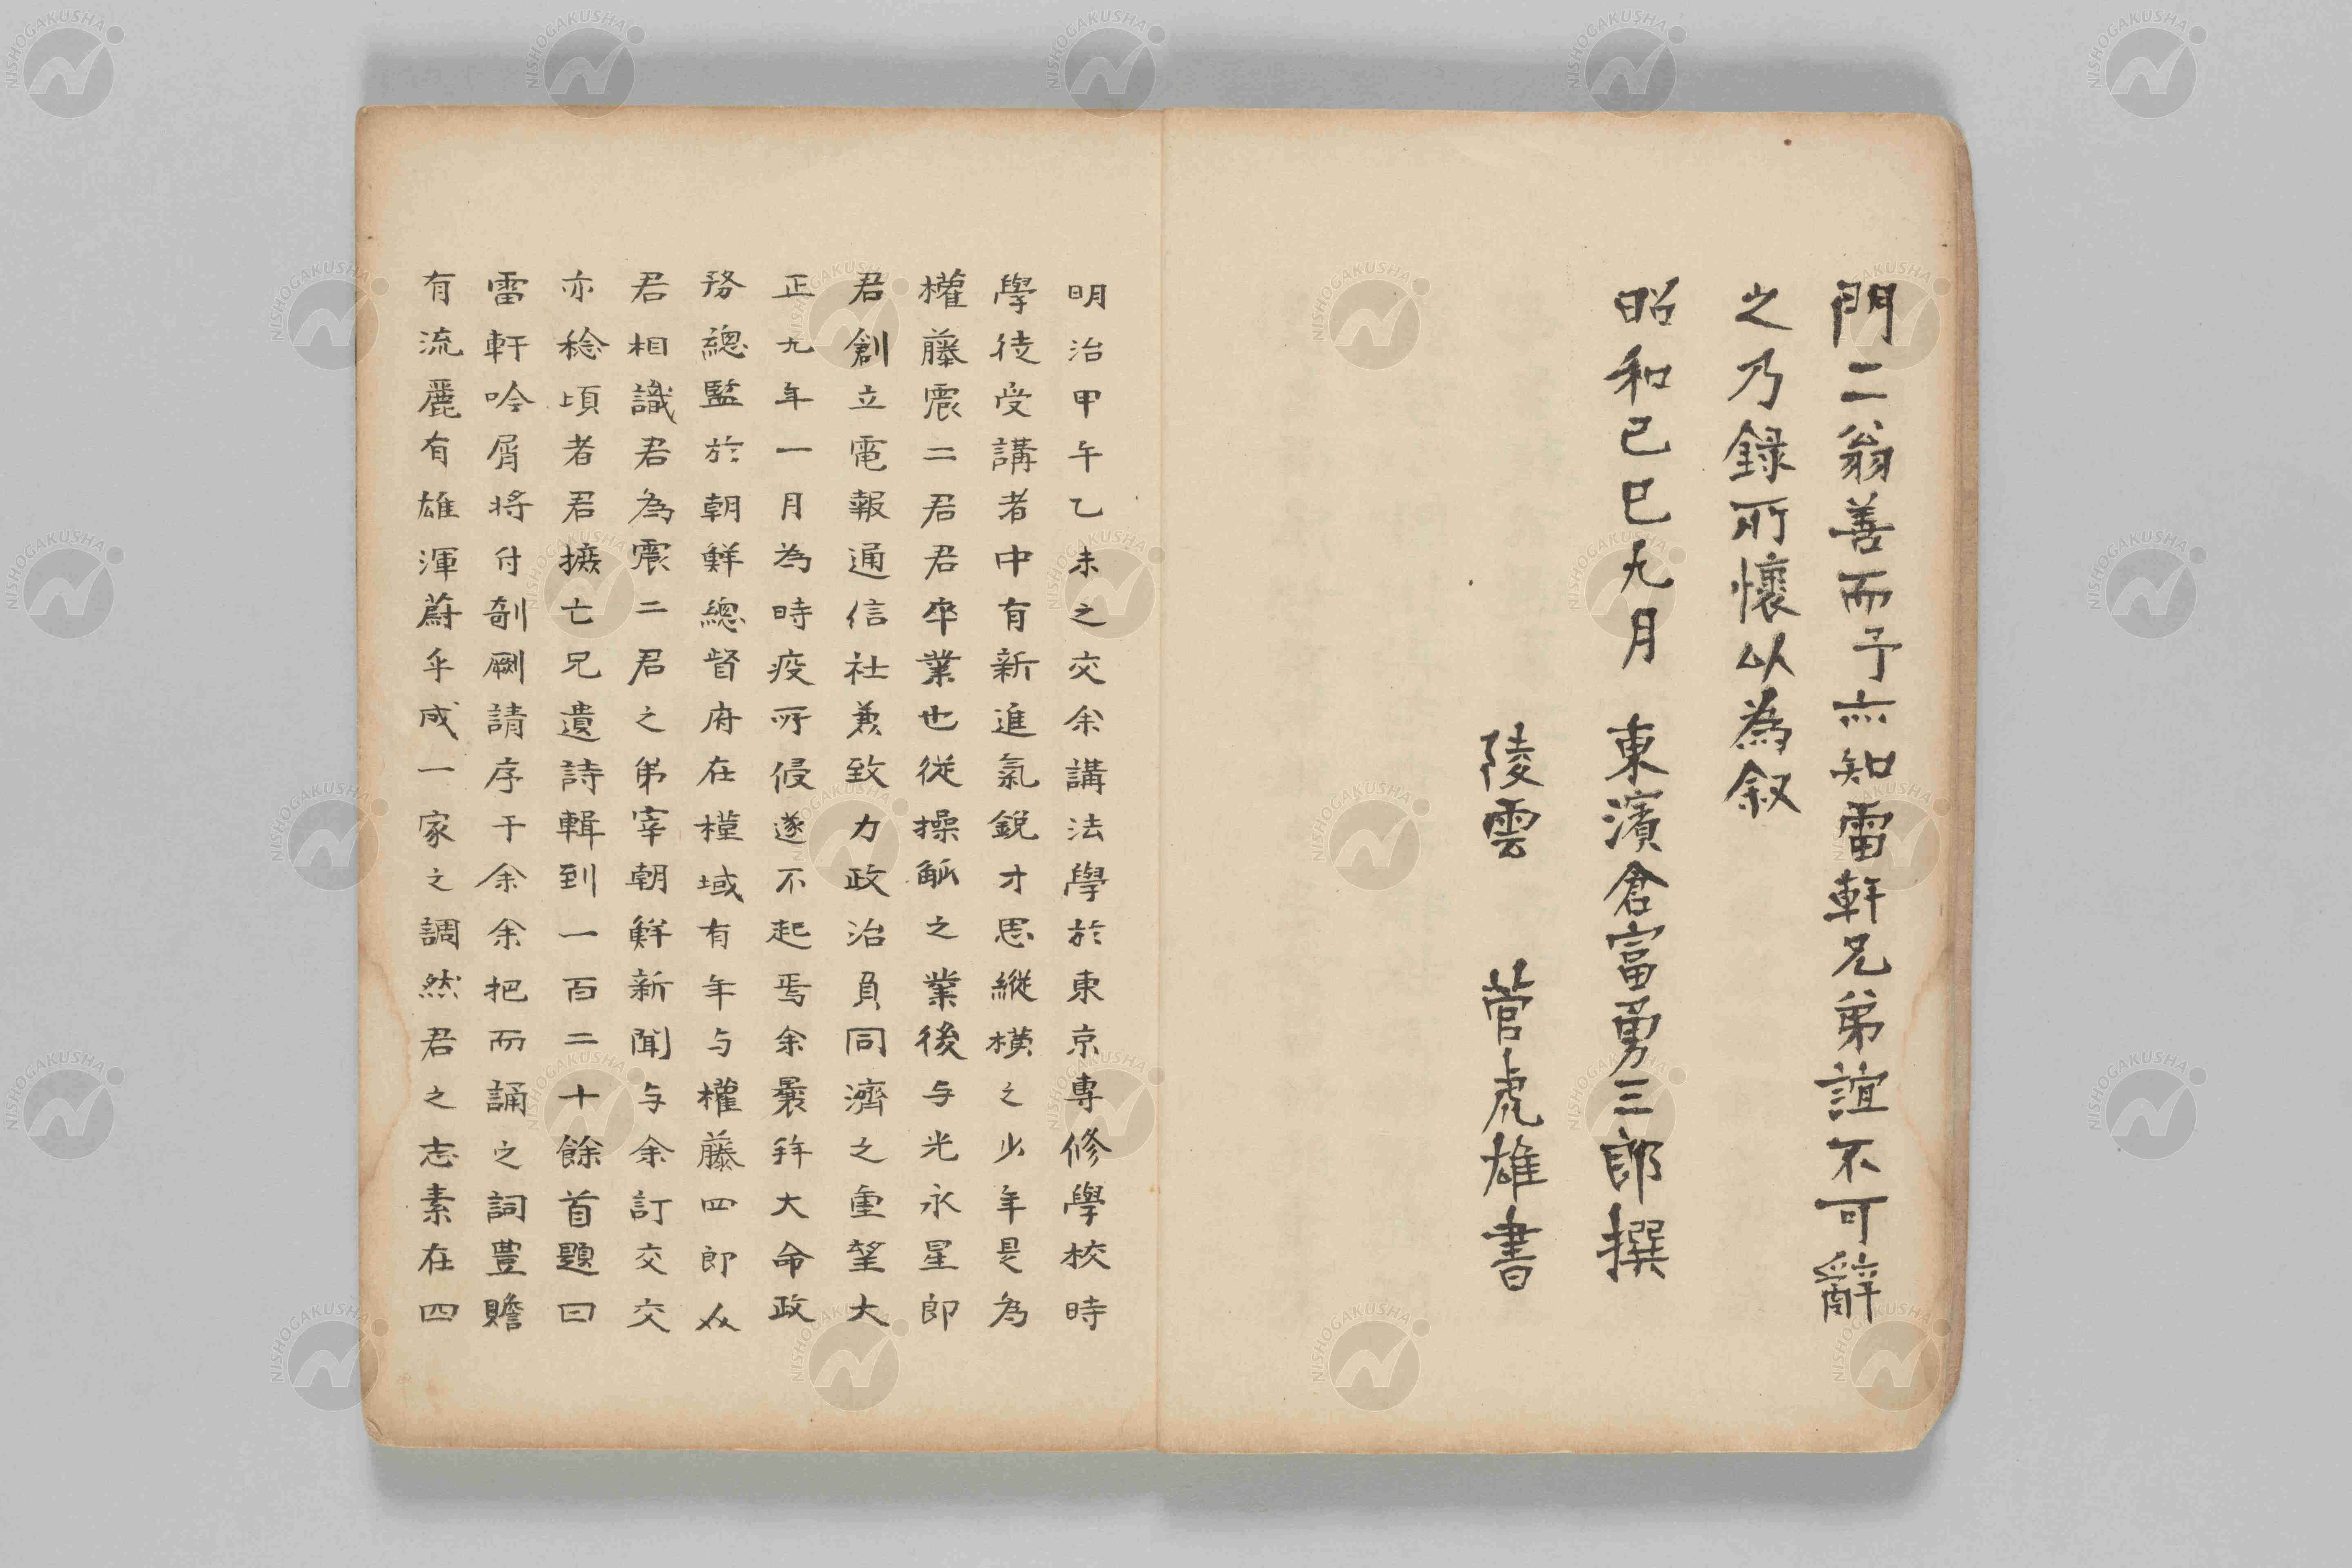 門二翁善而予亦知雷軒兄弟誼不可辭
之乃錄所懷以為叙
昭和己巳九月 東濱倉富勇三郎撰
陵雲 菅虎雄書
明治甲午乙未之交余講法學於東京専修學校時
學徒受講者中有新進氣銳才思縱橫之少年是為
權藤震二君君卒業也從操觚之業後与光永星郎
君創立電報通信社兼致力政治負同濟之重望大
正九年一月為時疫所侵遂不起焉余曩拜大命政
務總監於朝鮮總督府在槿域有年与權藤四郎介
君相識君為震二君之弟宰朝鮮新聞与余訂交交
亦稔頃者君摭亡兄遺詩輯到一百二十餘首題曰
雷軒吟屑將付剞劂請序于余余把而誦之詞豊贍
有流麗有雄渾蔚乎成一家之調然君之志素在四
NISHOGAKUSHA